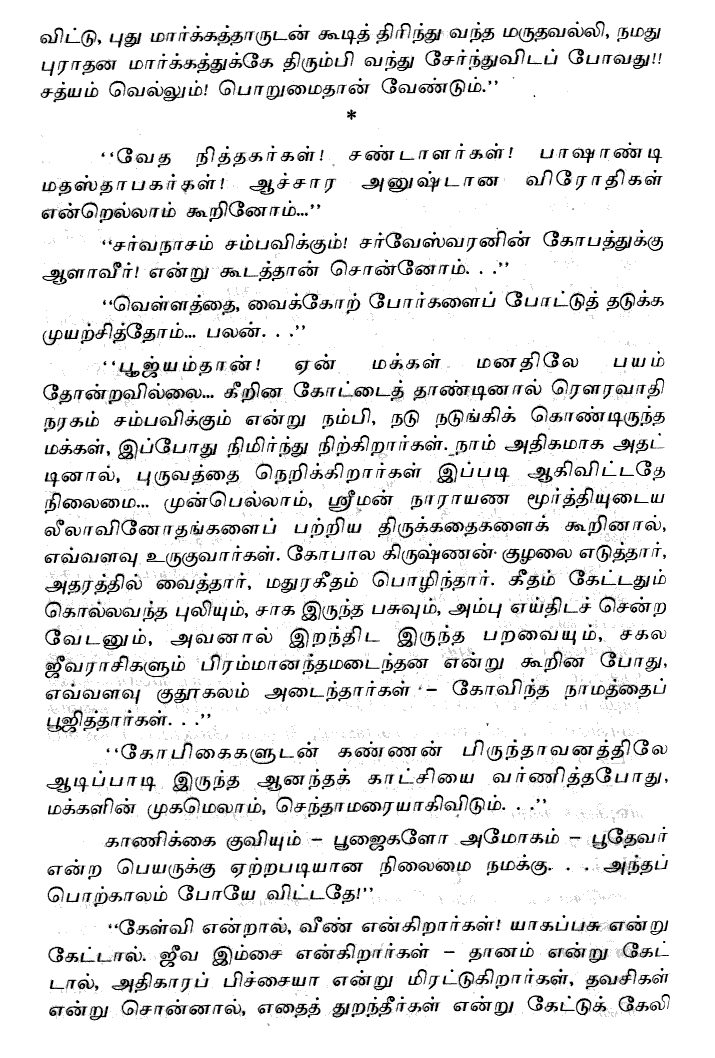 விட்டு, புது மார்க்கத்தாருடன் கூடித் திரிந்து வந்த மருதவல்லி, நமது
புராதன மார்க்கத்துக்கே திரும்பி வந்து சேர்ந்துவிடப் போவது!!
சத்யம் வெல்லும்! பொறுமைதான் வேண்டும்.''
*
''வேத நித்தகர்கள்! சண்டாளர்கள்! பாஷாண்டி
மதஸ்தாபகர்கள்! ஆச்சார அனுஷ்டான விரோதிகள்
என்றெல்லாம் கூறினோம்...''
''சர்வநாசம் சம்பவிக்கும்! சர்வேஸ்வரனின் கோபத்துக்கு
ஆளாவீர்! என்று கூடத்தான் சொன்னோம். . .''
''வெள்ளத்தை, வைக்கோற் போர்களைப் போட்டுத் தடுக்க
முயற்சித்தோம்... பலன். . .''
''பூஜ்யம்தான்! ஏன் மக்கள் மனதிலே பயம்
தோன்றவில்லை... கீறின கோட்டைத் தாண்டினால் ரௌரவாதி
நரகம் சம்பவிக்கும் என்று நம்பி, நடு நடுங்கிக் கொண்டிருந்த
மக்கள், இப்போது நிமிர்ந்து நிற்கிறார்கள். நாம் அதிகமாக அதட்
டினால், புருவத்தை நெறிக்கிறார்கள் இப்படி ஆகிவிட்டதே
நிலைமை... முன்பெல்லாம், ஸ்ரீமன் நாராயண மூர்த்தியுடைய
லீலாவினோதங்களைப் பற்றிய திருக்கதைகளைக் கூறினால்,
எவ்வளவு உருகுவார்கள். கோபால கிருஷ்ணன் குழலை எடுத்தார்,
அதரத்தில் வைத்தார், மதுரகீதம் பொழிந்தார். கீதம் கேட்டதும்
கொல்லவந்த புலியும், சாக இருந்த பசுவும், அம்பு எய்திடச் சென்ற
வேடனும், அவனால் இறந்திட இருந்த பறவையும், சகல
ஜீவராசிகளும் பிரம்மானந்தமடைந்தன என்று கூறின போது,
எவ்வளவு குதூகலம் அடைந்தார்கள் – கோவிந்த நாமத்தைப்
பூஜித்தார்கள். . .''
''கோபிகைகளுடன் கண்ணன் பிருந்தாவனத்திலே
ஆடிப்பாடி இருந்த ஆனந்தக் காட்சியை வர்ணித்தபோது,
மக்களின் முகமெலாம், செந்தாமரையாகிவிடும். . .''
காணிக்கை குவியும் – பூஜைகளோ அமோகம் – பூதேவர்
என்ற பெயருக்கு ஏற்றபடியான நிலைமை நமக்கு. . . அந்தப்
பொற்காலம் போயே விட்டதே!''
''கேள்வி என்றால், வீண் என்கிறார்கள்! யாகப்பசு என்று
கேட்டால். ஜீவ இம்சை என்கிறார்கள் – தானம் என்று கேட்
டால், அதிகாரப் பிச்சையா என்று மிரட்டுகிறார்கள், தவசிகள்
என்று சொன்னால், எதைத் துறந்தீர்கள் என்று கேட்டுக் கேலி